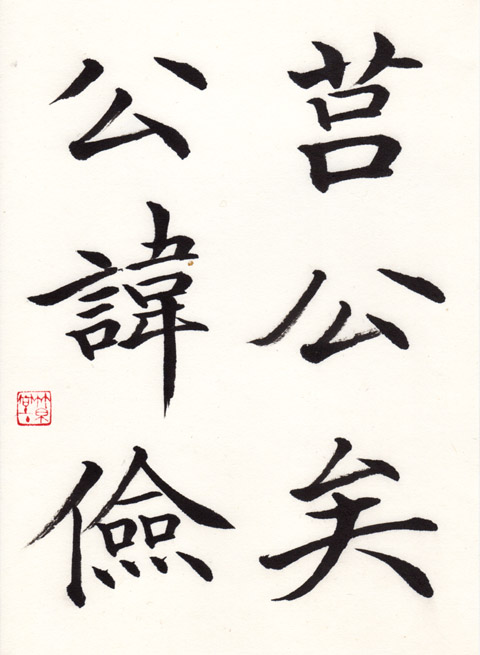 莒公矣
公諱儉